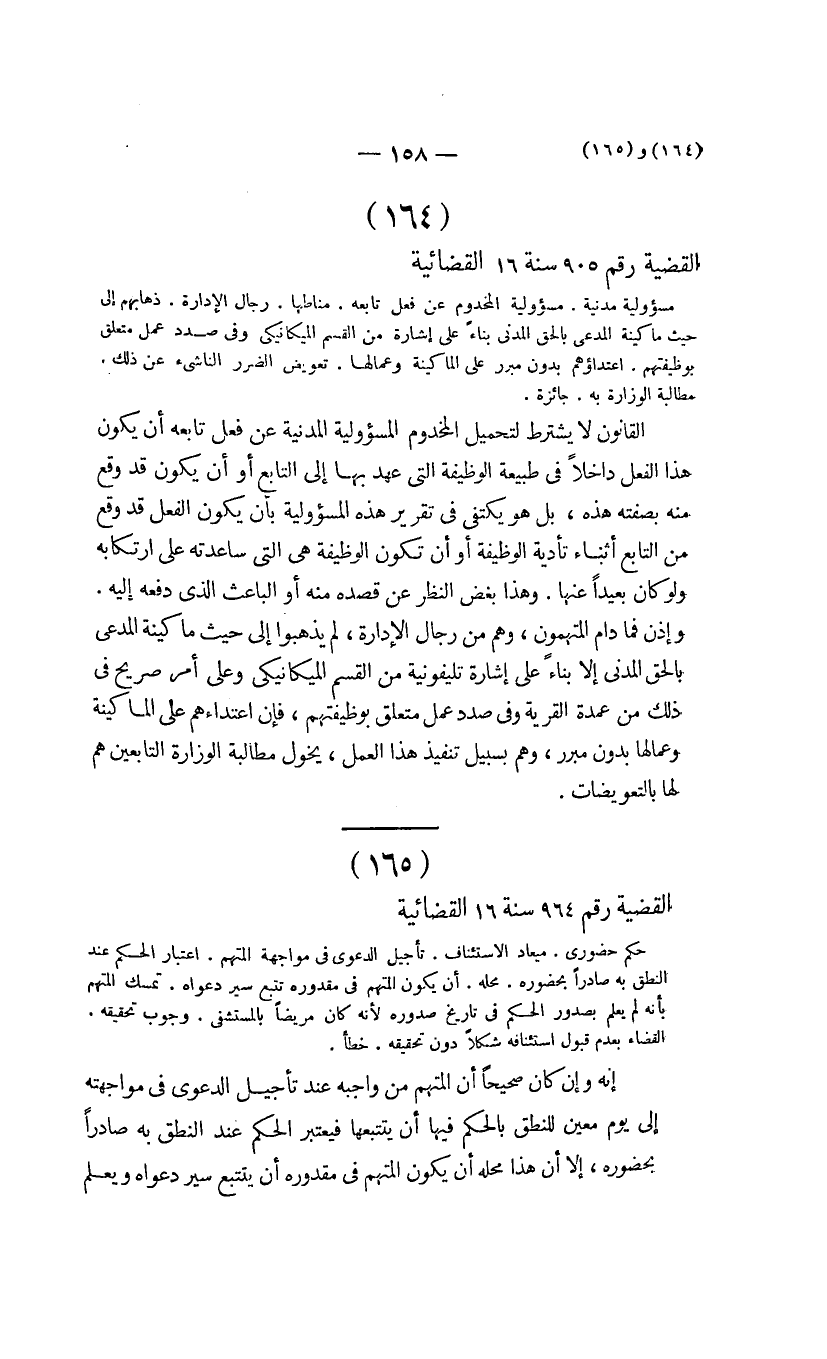 (١٦٤) و (١٦٥)
— ١٥٨ —
(١٦٤)
القضية رقم ٩٠٥ سنة ١٦ القضائية
مسؤولية مدنية . مسؤولية المخدوم عن فعل تابعه . مناطها . رجال الإدارة . ذهابهم إلى
حيث ماكينة المدعى بالحق المدنى بناءً على إشارة من القسم الميكانيكى وفى صدد عمل متعلق
بوظيفتهم . اعتداؤهم بدون مبرر على الماكينة وعمالها . تعويض الضرر الناشىء عن ذلك .
مطالبة الوزارة به . جائزة .
القانون لا يشترط لتحميل المخدوم المسؤولية المدنية عن فعل تابعه أن يكون
هذا الفعل داخلاً فى طبيعة الوظيفة التى عهد بها إلى التابع أو أن يكون قد وقع
منه بصفته هذه ، بل هو يكتفى فى تقرير هذه المسؤولية بأن يكون الفعل قد وقع
من التابع أثناء تأدية الوظيفة أو أن تكون الوظيفة هى التى ساعدته على ارتكابه
ولو كان بعيداً عنها . وهذا بغض النظر عن قصده منه أو الباعث الذى دفعه إليه .
وإذن فما دام المتهمون ، وهم من رجال الإدارة ، لم يذهبوا إلى حيث ماكينة المدعى
بالحق المدنى إلا بناءً على إشارة تليفونية من القسم الميكانيكى وعلى أمر صريح فى
ذلك من عمدة القرية وفى صدد عمل متعلق بوظيفتهم ، فإن اعتداءهم على الماكينة
وعمالها بدون مبرر ، وهم بسبيل تنفيذ هذا العمل ، يخول مطالبة الوزارة التابعين هم
لها بالتعويضات .
(١٦٥)
القضية رقم ٩٦٤ سنة ١٦ القضائية
حكم حضورى . ميعاد الاستئناف . تأجيل الدعوى فى مواجهة المتهم . اعتبار الحكم عند
النطق به صادراً بحضوره . محله . أن يكون المتهم فى مقدوره تتبع سير دعواه . تمسك المتهم
بأنه لم يعلم بصدور الحكم فى تاريخ صدوره لأنه كان مريضاً بالمستشفى . وجوب تحقيقه .
القضاء بعدم قبول استئنافه شكلاً دون تحقيقه . خطأ .
إنه وإن كان صحيحاً أن المتهم من واجبه عند تأجيل الدعوى فى مواجهته
إلى يوم معين للنطق بالحكم فيها أن يتتبعها فيعتبر الحكم عند النطق به صادراً
بحضوره ، إلا أن هذا محله أن يكون المتهم فى مقدوره أن يتتبع سير دعواه ويعلم